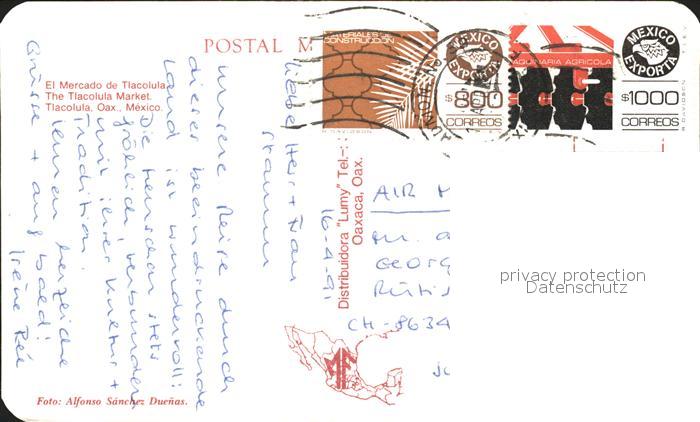 POSTAL M
El Mercado de Tlacolula
The Tlacolula Market.
Tlacolula, Oax., México.
MATERIALES DE
CONSTRUCCION
MEXICO
EXPORTA
$800
CORREOS
MAQUINARIA AGRICOLA
MEXICO
EXPORTA
$1000
CORREOS
Distribuidora "Lumy" Tel.-:
Oaxaca, Oax.
16-4-91
Liebe Herr + Frau
Stamm
unsere Reise durch
dieses beeindruckende
Land ist wundervoll:
Die Menschen stets
fröhlich, verbunden
mit ihrer Kultur +
Tradition.
Ihnen herzliche
Grüsse + auf bald!
Irène
AIR M
Geor
Rüti
CH-8634
privacy protection
Datenschutz
Foto: Alfonso Sánchez Dueñas.